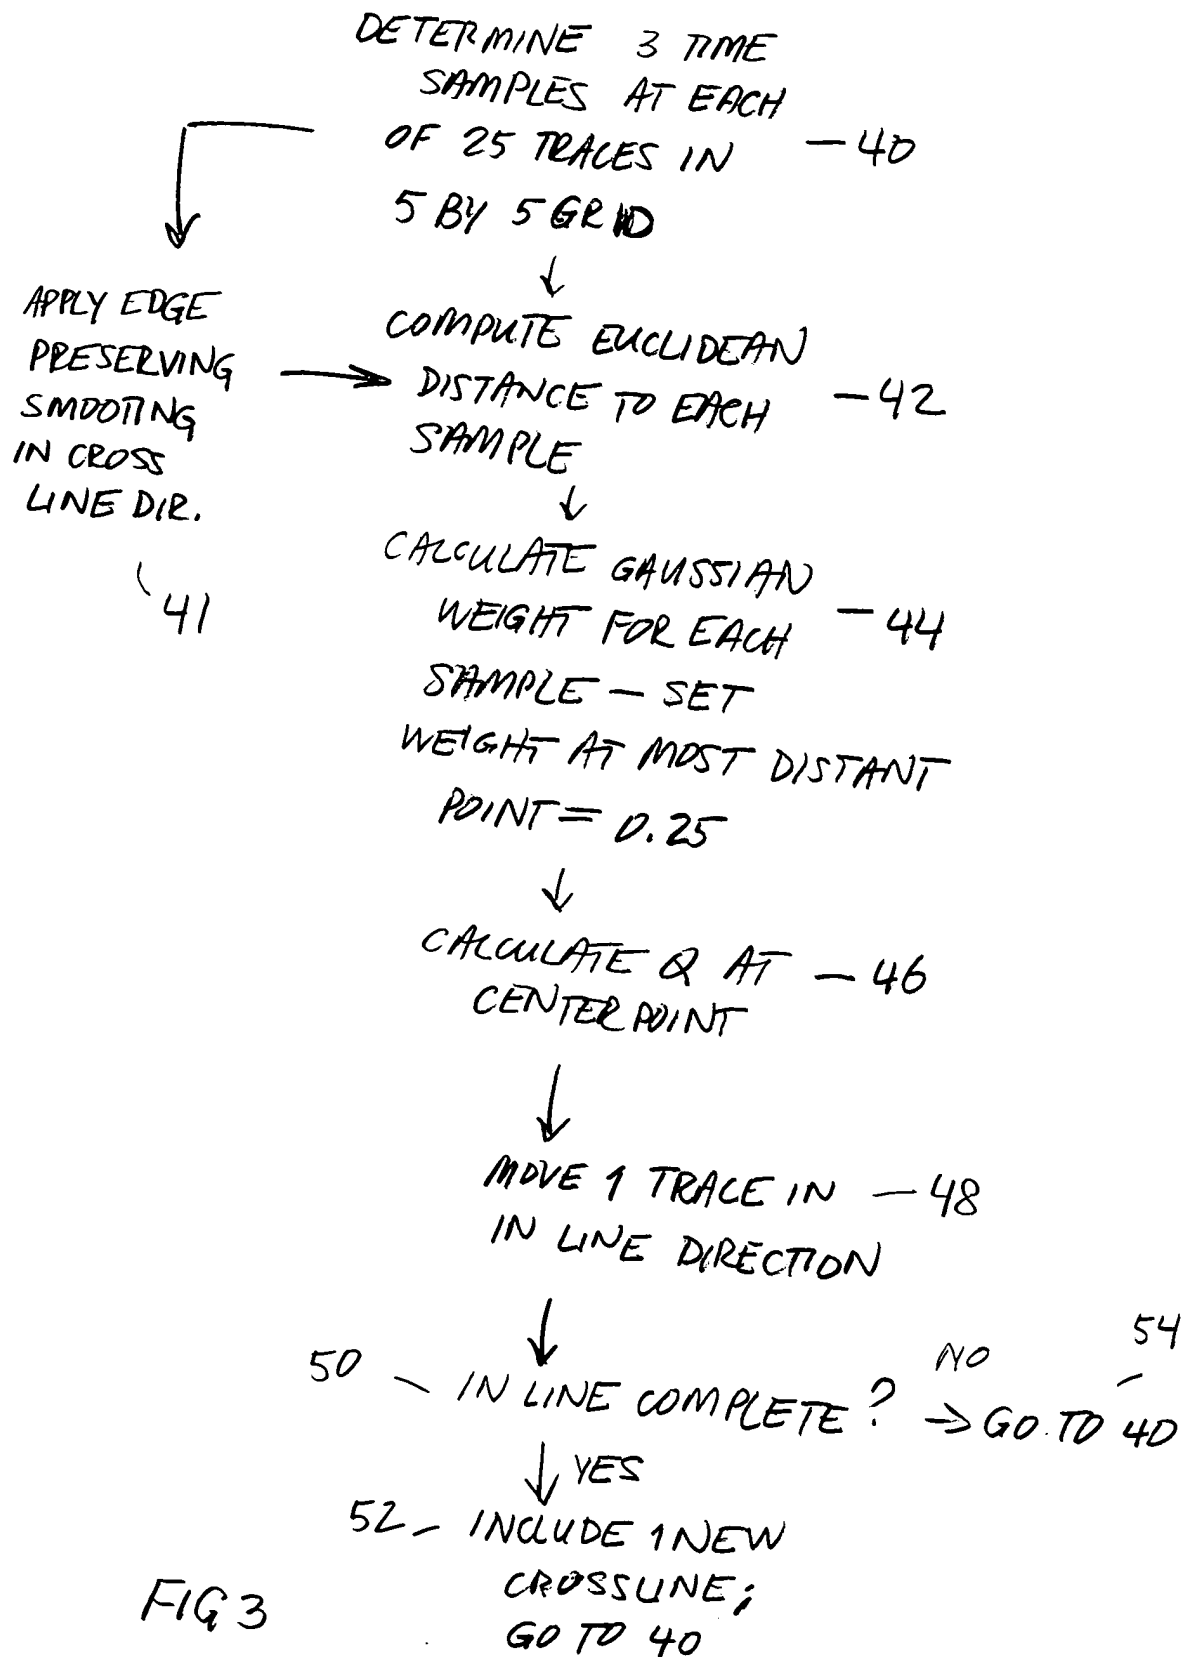 DETERMINE 3 TIME
SAMPLES AT EACH
OF 25 TRACES IN — 40
5 BY 5 GRID
APPLY EDGE
PRESERVING
SMOOTING
IN CROSS
LINE DIR.
41
COMPUTE EUCLIDEAN
DISTANCE TO EACH — 42
SAMPLE
CALCULATE GAUSSIAN
WEIGHT FOR EACH — 44
SAMPLE — SET
WEIGHT AT MOST DISTANT
POINT = 0.25
CALCULATE Q AT — 46
CENTERPOINT
MOVE 1 TRACE IN — 48
IN LINE DIRECTION
50 — IN LINE COMPLETE?
NO
54
→ GO TO 40
YES
52 — INCLUDE 1 NEW
CROSSLINE;
GO TO 40
FIG 3